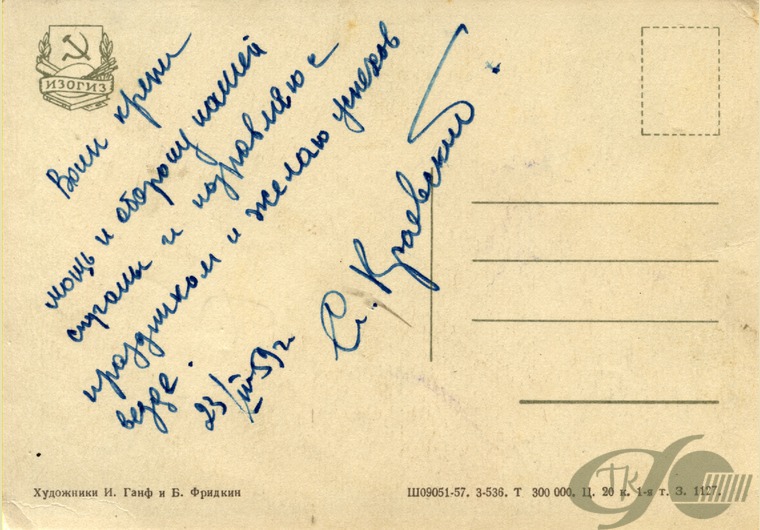 ИЗОГИЗ
Воин крепи
мощь и оборону нашей
страны и поздравляю с
праздником и желаю успехов
везде.
23/III-59 г.
С. Краевский
Художники И. Ганф и Б. Фридкин
Ш09051-57. З-536. Т 300 000. Ц. 20 к. 1-я т. З. 1127.
ТК